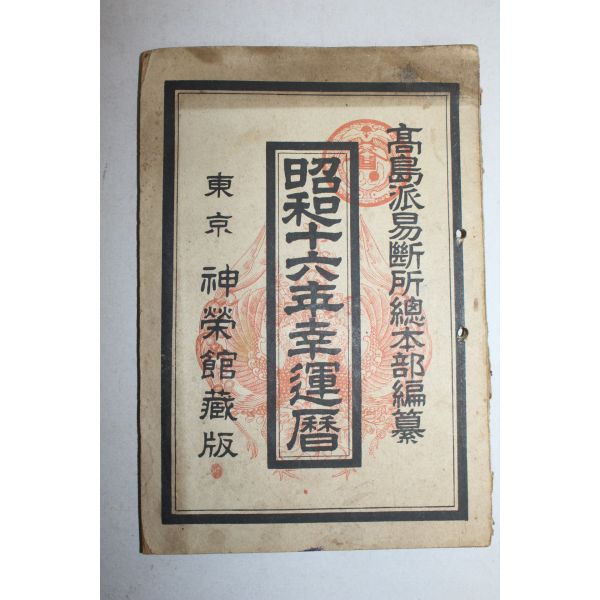 高島派易斷所總本部編纂
昭和十六年幸運曆
東京 神榮館藏版